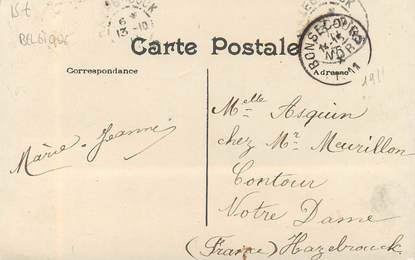 15€
BELGIQUE
6
13-10
BONSECOURS
NORD
11
Carte Postale
Correspondance
Adresse
1911
Melle Asquin
chez Mr Meurillon
Contour
Notre Dame
(France) Hazebrouck
Marie-Jeanne